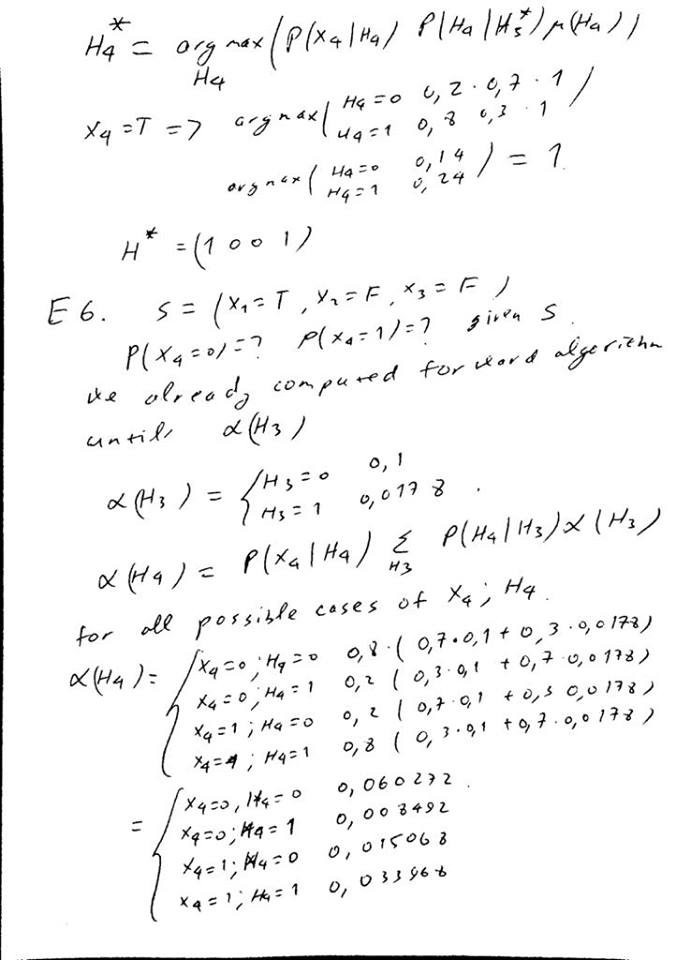 H4* = argmax(P(X4|H4) P(H4|H3*) μ(H4))
H4
X4=T => argmax( H4=0 0,2·0,7·1
H4=1 0,8 0,3·1 )
argmax( H4=0 0,14
H4=1 0,24 ) = 1
H* = (1 0 0 1)
E6. S = (X1=T, X2=F, X3=F)
P(X4=0)=? P(X4=1)=? given S
we already computed forward algorithm
until α(H3)
α(H3) = { H3=0 0,1
H3=1 0,0178 .
α(H4) = P(X4|H4) Σ P(H4|H3) α(H3)
H3
for all possible cases of X4; H4.
α(H4) = { X4=0; H4=0 0,8·(0,7·0,1+0,3·0,0178)
X4=0; H4=1 0,2 (0,3·0,1+0,7·0,0178)
X4=1; H4=0 0,2 (0,7·0,1+0,3 0,0178)
X4=1; H4=1 0,8 (0,3·0,1+0,7·0,0178)
= { X4=0, H4=0 0,060272.
X4=0; H4=1 0,008492
X4=1; H4=0 0,015068
X4=1; H4=1 0,033968